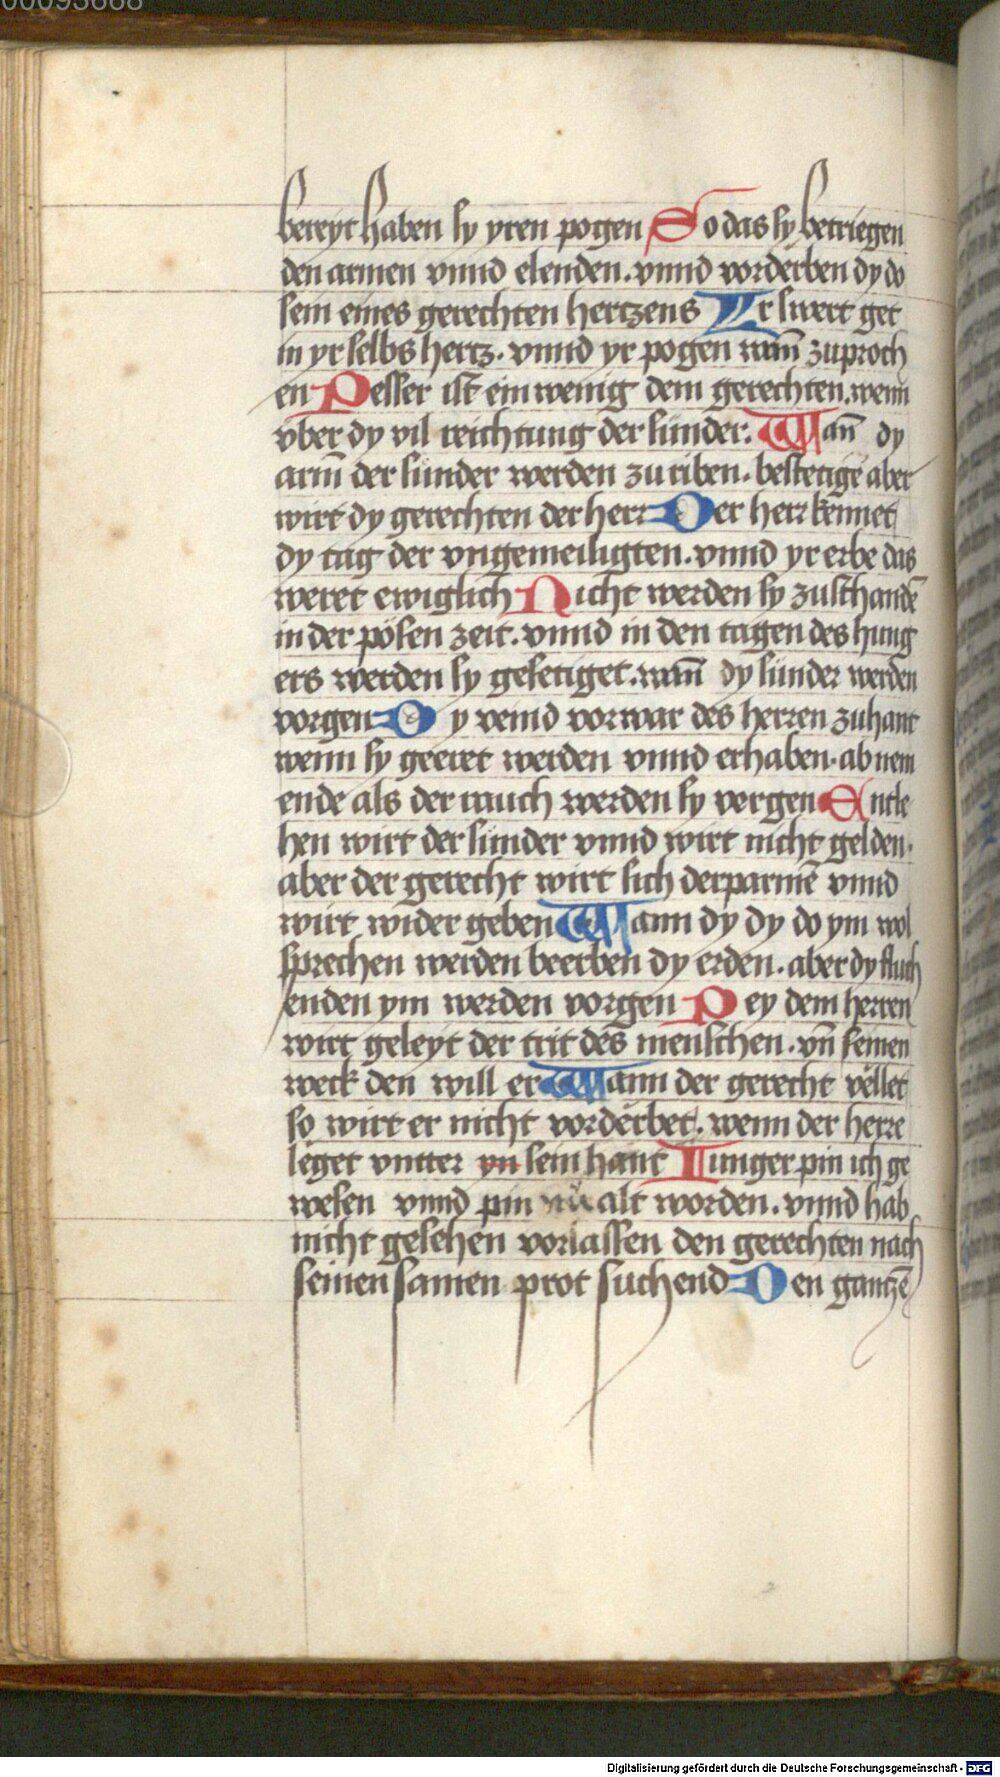 00093668
bereyt haben sy yren pogen So das sy betriegen
den armen vnnd elenden. vnnd vorderben dy do
sein eines gerechten hertzens Ir swert get
in yr selbs hertz. vnnd yr pogen wañ zuproch
en Pesser ist ein wenig dem gerechten. wenn
vber dy vil reichtung der sunder. Wañ dy
arm̄ der sunder werden zuriben. bestetigē aber
wirt dy gerechten der herr Der herr kennet
dy tag der vngemeiligten. vnnd yr erbe das
weret ewiglich Nicht werden sy zuschandē
in der pösen zeit. vnnd in den tagen des hung
ers werden sy gesetiget. wañ dy sünder werden
vorgen Dy veind vorwar des herren zuhant
wenn sy geeret werden vnnd erhaben. ab nem
ende als der rauch werden sy vergen Entle
hen wirt der sunder vnnd wirt nicht gelden.
aber der gerecht wirt sich derparmē vnnd
wirt wider geben Wann dy dy do ym wol
sprechen werden beerben dy erden. aber dy fluch
enden ym werden vorgen Pey dem herren
wirt geleyt der trit des menschen. vñ seinen
weck den will er Wann der gerecht vellet
so wirt er nicht vorderbet. wenn der herre
leget vntter yn sein hant Iunger pin ich ge
wesen vnnd pin nu alt worden. vnnd hab
nicht gesehen vorlassen den gerechten nach
seinen samen prot suchend Den gantzē
Digitalisierung gefördert durch die Deutsche Forschungsgemeinschaft - DFG